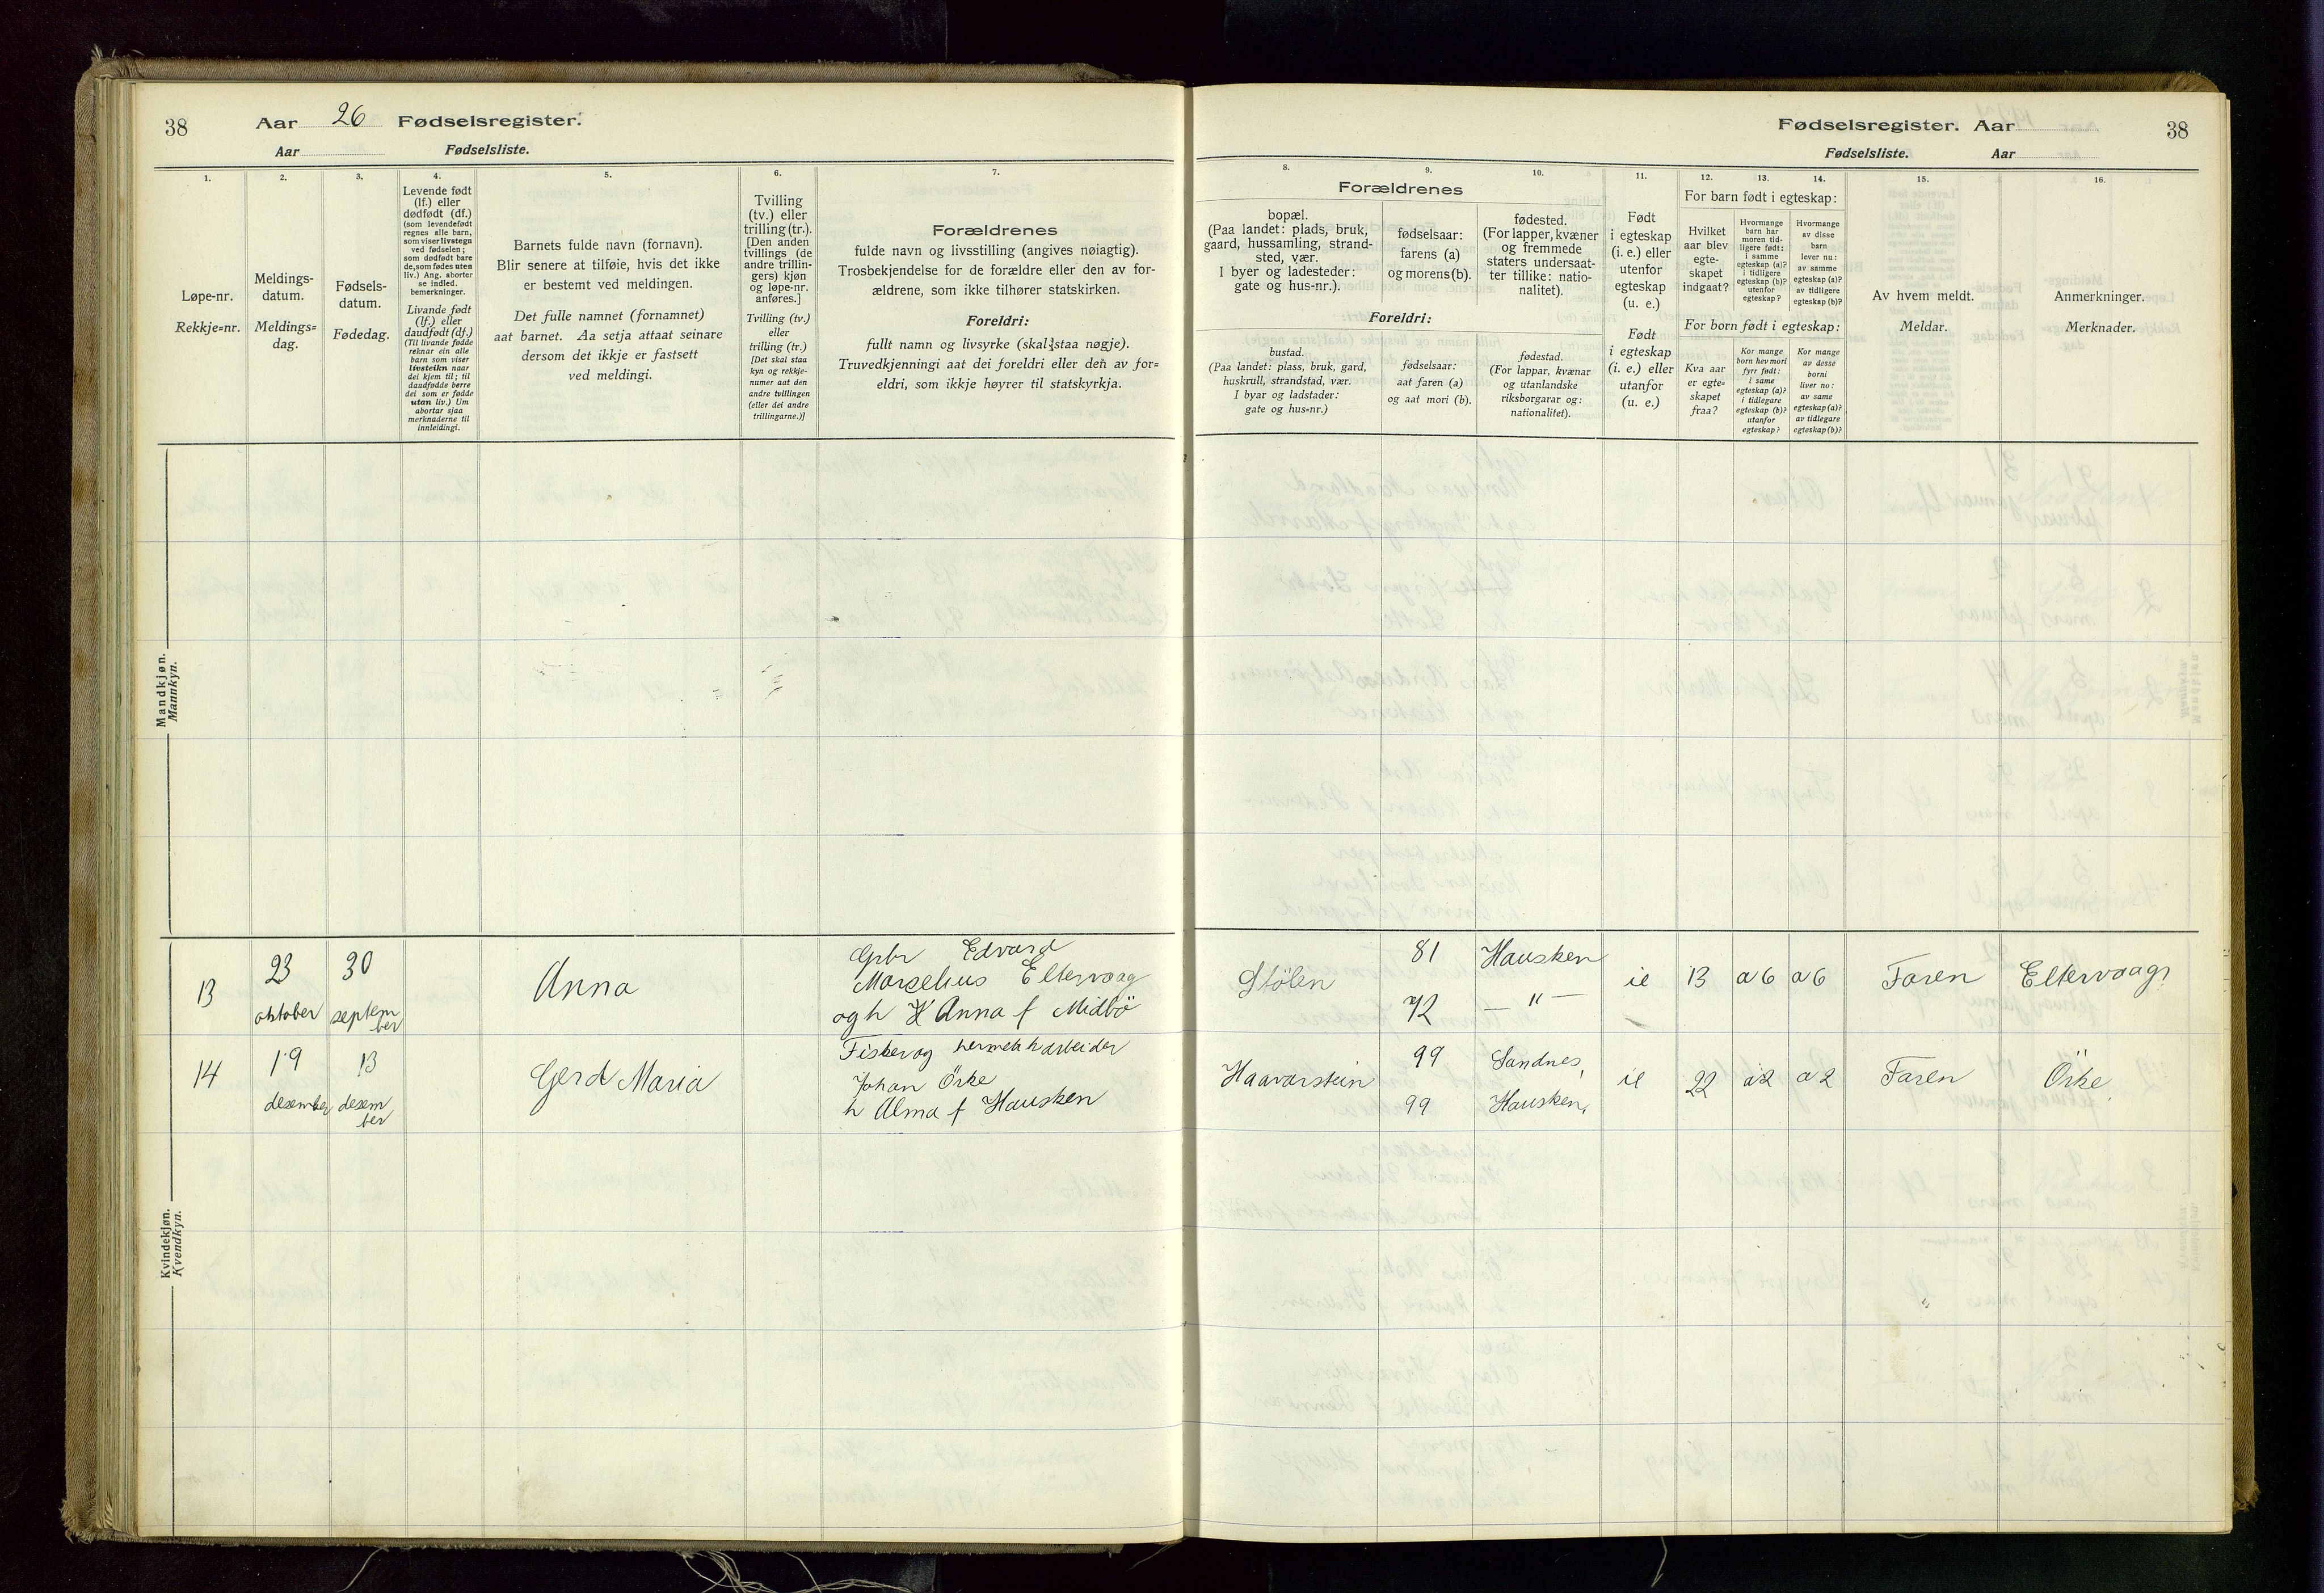 38 Aar 26 Fødselsregister.
Aar Fødselsliste.
1.
Løpe-nr.
Rekkje=nr.
2.
Meldings-
datum.
Meldings=
dag.
3.
Fødsels-
datum.
Fødedag.
4.
Levende født
(lf.) eller
dødfødt (df.)
(som levendefødt
regnes alle barn,
som viser livstegn
ved fødselen;
som dødfødt bare
de, som fødes uten
liv.) Ang. aborter
se indled.
bemerkninger.
Livande født
(lf.) eller
daudfødt (df.)
(Til livande fødde
reknar ein alle
born som viser
livsteikn naar
dei kjem til; til
daudfødde berre
dei som er fødde
utan liv.) Um
abortar sjaa
merknaderne til
innleidingi.
5.
Barnets fulde navn (fornavn).
Blir senere at tilføie, hvis det ikke
er bestemt ved meldingen.
Det fulle namnet (fornamnet)
aat barnet. Aa setja attaat seinare
dersom det ikkje er fastsett
ved meldingi.
6.
Tvilling
(tv.) eller
trilling (tr.).
[Den anden
tvillings (de
andre trillin-
gers) kjøn
og løpe-nr.
anføres.]
Tvilling (tv.)
eller
trilling (tr.)
[Det skal staa
kyn og rekkje-
numer aat den
andre tvillingen
(eller dei andre
trillingarne.)]
7.
Forældrenes
fulde navn og livsstilling (angives nøiagtig).
Trosbekjendelse for de forældre eller den av for-
ældrene, som ikke tilhører statskirken.
Foreldri:
fullt namn og livsyrke (skal staa nøgje).
Truvedkjenningi aat dei foreldri eller den av for=
eldri, som ikkje høyrer til statskyrkja.
Mandkjøn.
Mannkyn.
13 23 oktober 30 septem
ber Anna Gbr Edvard
Marselius Eltervaag
og h H Anna f Midbö
14 19 desember 13 desem
ber Gerd Maria Fisker og hermetikkarbeider
Johan Örke
h Alma f Hausken
Kvindekjøn.
Kvendkyn.
Fødselsregister. Aar 38
Fødselsliste. Aar
8. 9. 10.
Forældrenes
bopæl.
(Paa landet: plads, bruk,
gaard, hussamling, strand-
sted, vær.
I byer og ladesteder:
gate og hus-nr.).
fødselsaar:
farens (a)
og morens (b).
fødested.
(For lapper, kvæner
og fremmede
staters undersaat-
ter tillike: natio-
nalitet).
Foreldri:
bustad.
(Paa landet: plass, bruk, gard,
huskrull, strandstad, vær.
I byar og ladstader:
gate og hus=nr.)
fødselsaar:
aat faren (a)
og aat mori (b).
fødestad.
(For lappar, kvænar
og utanlandske
riksborgarar og:
nationalitet).
11.
Født
i egteskap
(i. e.) eller
utenfor
egteskap
(u. e.)
Født
i egteskap
(i. e.) eller
utanfor
(u. e.)
12. 13. 14.
For barn født i egteskap:
Hvilket
aar blev
egte-
skapet
indgaat?
Hvormange
barn har
moren tid-
ligere født:
i samme
egteskap (a)?
i tidligere
egteskap (b)?
utenfor
egteskap?
Hvormange
av disse
barn
lever nu:
av samme
egteskap (a)?
av tidligere
egteskap (b)?
For born født i egteskap:
Kva aar
er egte=
skapet
fraa?
Kor mange
born hev mori
fyrr født:
i same
egteskap (a)?
i tidlegare
egteskap (b)?
utanfor
egteskap?
Kor mange
av desse
borni
liver no:
av same
egteskap (a)?
av tidlegare
egteskap (b)?
15.
Av hvem meldt.
Meldar.
16.
Anmerkninger.
Merknader.
Stölen 81 Hausken ie 13 a 6 a 6 Faren Eltervaag
72 — " —
Haavarstein 99 Sandnes, ie 22 a 2 a 2 Faren Örke
99 Hausken,